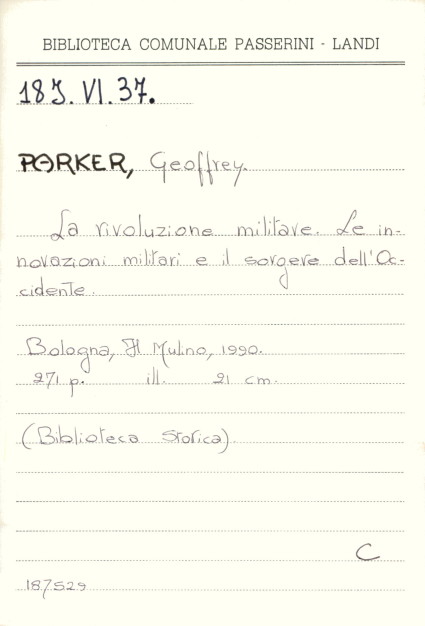 BIBLIOTECA COMUNALE PASSERINI - LANDI
18J. VI. 37.
PARKER, Geoffrey.
La rivoluzione militare. Le in-
novazioni militari e il sorgere dell'Oc-
cidente.
Bologna, Il Mulino, 1990.
271 p. ill. 21 cm.
(Biblioteca Storica)
C
187529